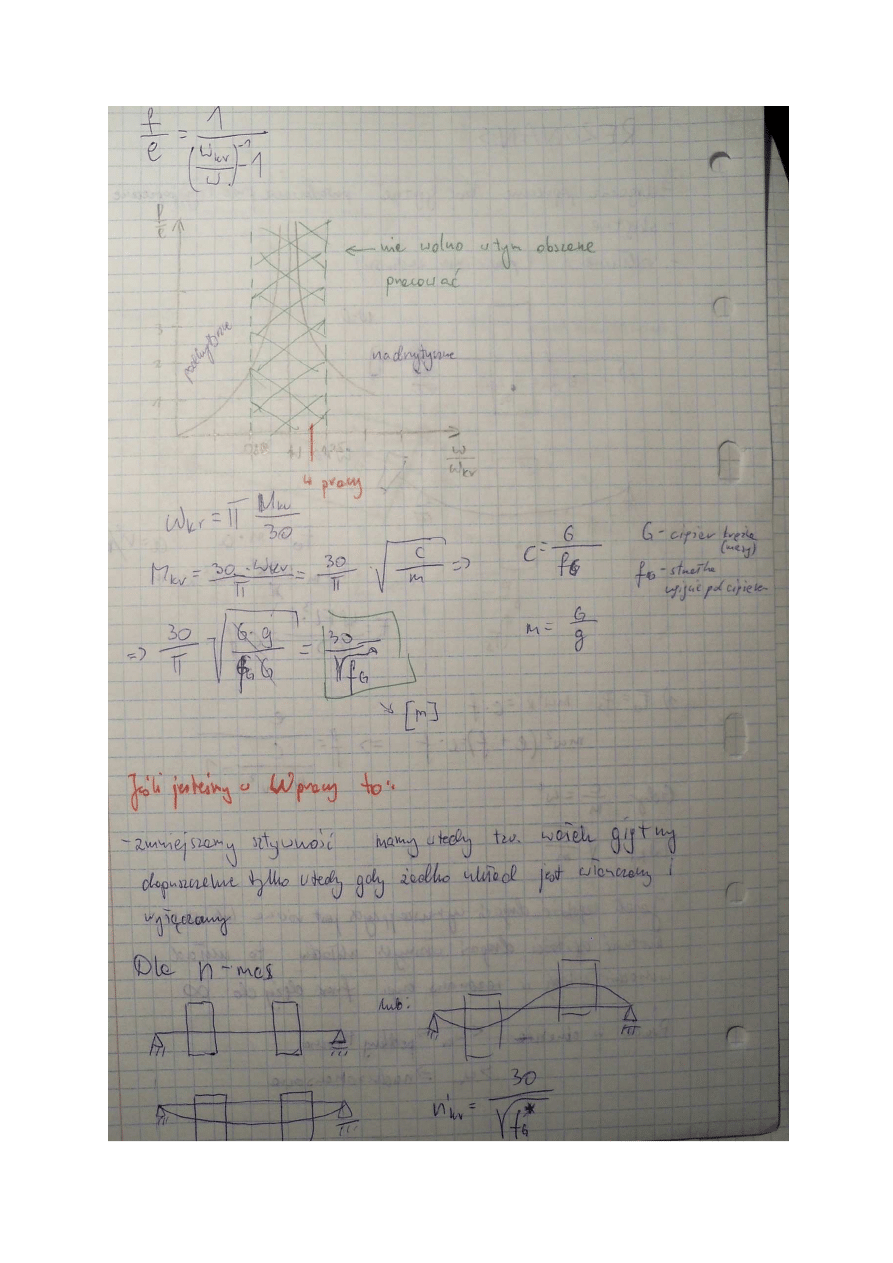 f/e = 1/((ω_kr/ω)^-1 - 1)
f/e
← nie wolno w tym obszarze
pracować
podkrytyczne
nadkrytyczne
3
2
1
ω/ω_kr
ω pracy
ω_kr = π n_kr/30
n_kr = 30·ω_kr/π = 30/π · √(c/m) =>
c = G/f_G
G - ciężar krążka
(masy)
f_G - strzałka
ugięć pod ciężarem
=> 30/π √(G·g/f_G G) = 30/√f_G
m = G/g
↘ [m]
Jeśli jesteśmy w ω pracy to:
- zmniejszamy sztywność mamy wtedy tzw. wałek giętny
dopuszczalne tylko wtedy gdy żadko układ jest włanczany i
wyłączany
Dla n-mas
lub:
n'kr = 30/√f_G*